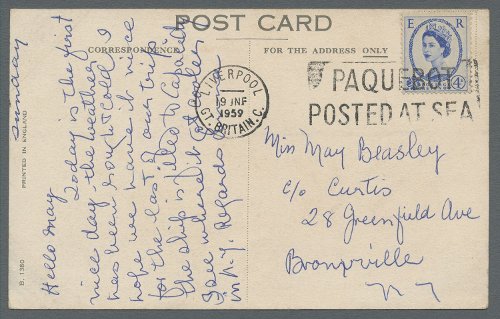 POST CARD
CORRESPONDENCE
FOR THE ADDRESS ONLY
E R
4D
LIVERPOOL
9 JNE
1959
GT. BRITAIN. C.
PAQUEBOT
POSTED AT SEA
Sunday
Hello May
Today is the first
nice day the weather
has been rough & cold I
hope we have it nice
for the last of our trip
the ship is filled to Capacity
I see where it is cooler
in N.Y. Regards
Miss May Beasley
c/o Curtis
28 Greenfield Ave
Bronxville
N Y
PRINTED IN ENGLAND
B. 1360